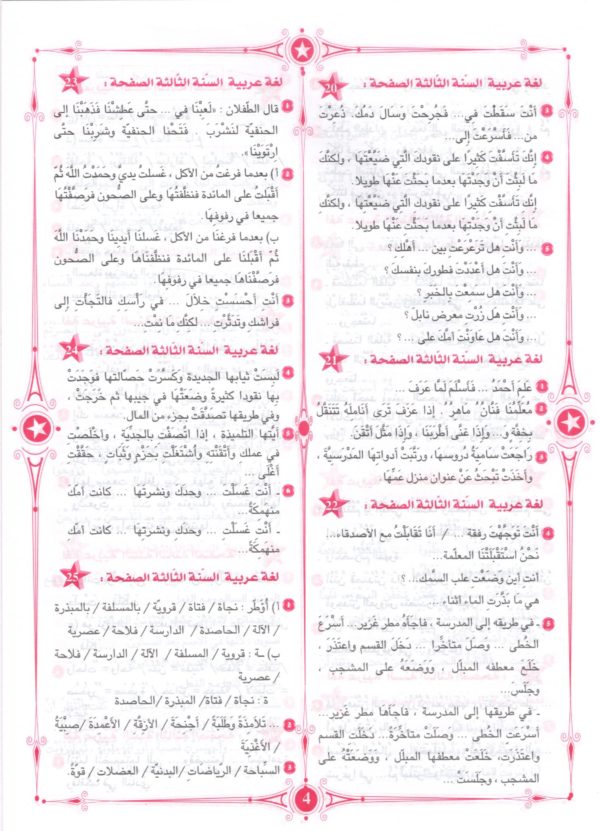 لغة عربية السنة الثالثة الصفحة : 20
3 أنتَ سَقَطْتَ في... فَجُرِحْتَ وَسَالَ دَمُكَ. ذُعِرْتَ
من... فَأَسْرَعْتَ إلى...
4 إنّكَ تَأسّفْتَ كثيرًا على نقودِكَ الّتي ضيّعْتَهَا ، ولكنّكَ
مَا لَبِثْتَ أنْ وَجَدْتَهَا بعدما بحَثْتَ عَنْهَا طويلا.
إنّكِ تَأسّفْتِ كثيرًا على نقودِكِ الّتي ضيّعْتِهَا ، ولكنّكِ
مَا لَبِثْتِ أنْ وَجَدْتِهَا بعدما بحَثْتِ عَنْهَا طويلا.
5 ... وأنْتِ هل تَرَعْرَعْتِ بين... أهْلِكِ ؟
... وأنْتِ هل أعْدَدْتِ فطورك بنفسكِ ؟
... وأنْتِ هل سَمِعْتِ بالخبرِ ؟
... وأنْتِ هل زُرْتِ معرض نابل ؟
... وأنْتِ هل عَاوَنْتِ امّكِ على ... ؟
لغة عربية السنة الثالثة الصفحة : 21
1 عَلِمَ أحْمَدُ ... فَأسْلَمَ لمَّا عرَفَ
2 مُعَلِّمُنَا فَنَّانٌ مَاهِرٌ . إذا عزَفَ تَرَى أنَامِلَهُ تَتَنَقَّلُ
بِخِفَّةٍ و... وإذَا غَنَّى أطْرَبَنَا ، وإذَا مَثَّلَ أتْقَنَ.
3 راجعتْ ساميةُ دروسَها ، ورتّبَتْ أدواتها المدْرسيّة ،
وأخَذَتْ تبْحَثُ عَنْ عنوان منزل عمِّها
لغة عربية السنة الثالثة الصفحة : 22
4 أنْتَ توَجّهْتَ رفقة ... / أنَا تَقَابَلْتُ مع الأصدقاء...
نَحْنُ اسْتَقْبَلْتْنَا المعلّمة.
انت اين وَضَعْتَ علب السّمك... ؟
هي مَا بَذَّرَت الماء اثناء ...
5 ـ في طريقه إلى المدرسة ، فاجَأهُ مطر غَزير... أسْرَعَ
الخُطى ... وَصَلَ متاخّرا ... دخَلَ القسم واعتَذَرَ ،
خلَعَ معطفه المبلّل ، وَوَضَعَهُ على المشجب ،
وجلَسَ.
ـ في طريقها إلى المدرسة ، فاجَأهَا مطر غزير...
أسرَعت الخُطى ... وصلَتْ متاخّرةً.. دخَلَت القسم
واعتذَرَت، خلَعَتْ معطفها المبلل ، وَوَضَعَتْهُ على
المشجب ، وجلسَتْ...
لغة عربية السنة الثالثة الصفحة : 23
4 قال الطّفلان : «لَعِبْنَا في ... حتّى عَطِشْنَا فَذَهَبْنَا إلى
الحنفيّة لنَشْرَبَ . فَتَحْنَا الحنفيّة وشربْنَا حتّى
ارْتَوَيْنَا».
5 أ) بعدما فرغت من الأكل ، غَسلتُ يديّ وحَمَدْتُ اللّه ثُمّ
أقبَلتُ على المائدة فنظّفْتُهَا وعلى الصّحون فرصّفْتُهَا
جميعا في رفوفها.
ب) بعدما فرغنا من الأكل ، غسلنا أيدينا وحَمَدْنَا اللّهَ
ثُمّ أقْبَلْنَا على المائدة فنظّفْنَاهَا وعلى الصّحون
فرَصّفْنَاهَا جميعا في رفوفها.
3 أنْتِ أحْسَسْتِ خلالَ ... في رأسِكِ فالتَجأتِ إلى
فراشك وتَدثّرْتِ ... لكنّكِ مَا نِمْتِ...
لغة عربية السنة الثالثة الصفحة : 24
4 لَبِسَتْ ثيابها الجديدة وكسّرَتْ حَصّالتها فَوَجَدَتْ
بها نقودا كثيرة وضعَتْها في جيبها ثم خَرجَتْ ،
وفي طريقها تصدّقَتْ بجزء من المال.
5 أيّتها التلميذة ، إذا اتصَفْتِ بالجدّيّة ، وأخْلَصْتِ
في عملك وأتْقَنْتِهِ واشْتَغَلْتِ بحَزْمٍ وثَبَاتٍ ، حَقّقْتِ
أغْلَى ...
6 ـ أنْتَ غَسلْتَ ... وحدَكَ ونشرتَها ... كانت امكَ
منهمكَةً
ـ أنْتِ غَسلْتِ ... وحدَكِ ونشرتِها ... كانت امكِ
منهمكَةً
لغة عربية السنة الثالثة الصفحة : 25
1 1) أُؤطّر : نجاة / فتاة / قرويّة / بالمسلفة / بالمبذرة
/ الآلة / الحاصدة / الدارسة / فلاحة / عصرية
ب) ـة : قروية / المسلفة / الآلة / الدارسة / فلاحة
/ عصرية
ة : نجاة / فتاة / المبذرة / الحاصدة
2 ... تَلَامِذَةٌ وطَلَبَةٌ / أجْنِحَة / الأزقّة / الأعْمِدَة / صبْيَةٌ
/ الأغْذِيَة
3 السّباحة / الرّياضَات / البدنيّة / العضلات / قوّة.
4